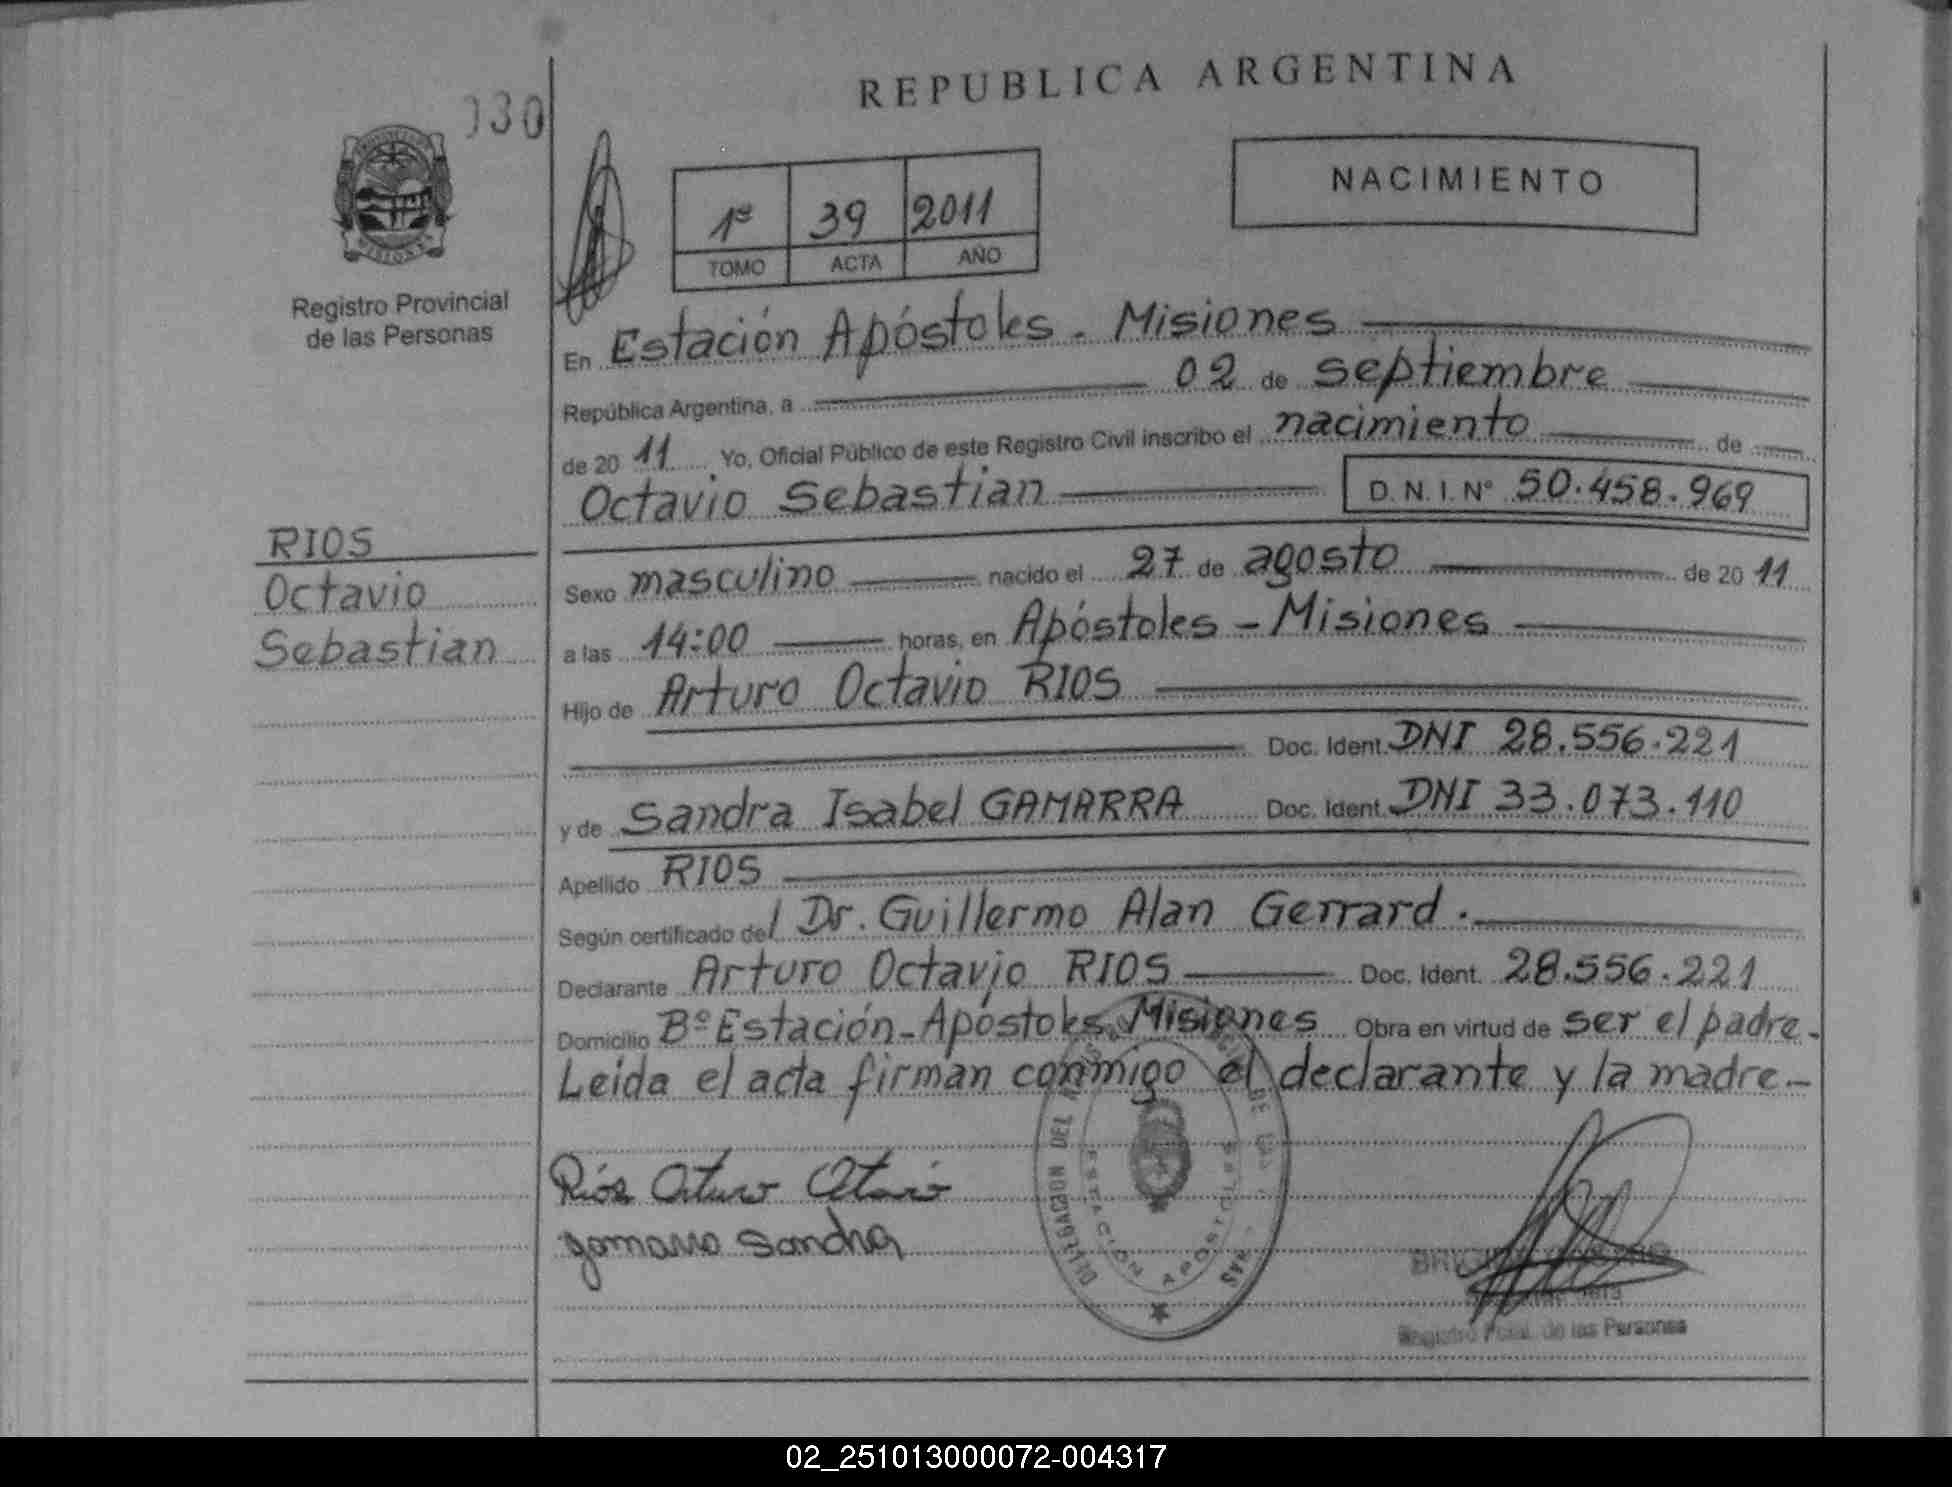 REPUBLICA ARGENTINA
030
NACIMIENTO
1º 39 2011
TOMO ACTA AÑO
Registro Provincial
de las Personas
En Estación Apóstoles - Misiones
República Argentina, a 02 de septiembre
de 2011 Yo, Oficial Público de este Registro Civil inscribo el nacimiento de
Octavio Sebastian D.N.I. Nº 50.458.969
RIOS
Octavio
Sebastian
Sexo masculino nacido el 27 de agosto de 2011
a las 14:00 horas, en Apóstoles - Misiones
Hijo de Arturo Octavio RIOS
Doc. Ident. DNI 28.556.221
y de Sandra Isabel GAMARRA Doc. Ident. DNI 33.073.110
Apellido RIOS
Según certificado del Dr. Guillermo Alan Gerrard.
Declarante Arturo Octavio RIOS Doc. Ident. 28.556.221
Domicilio Bº Estación - Apóstoles, Misiones Obra en virtud de ser el padre.
Leida el acta firman conmigo el declarante y la madre.-
Ríos Arturo Octavio
Gamarra Sandra
DELEGACION DEL
ESTACION APOSTOLES
Registro Pcial. de las Personas
02_251013000072-004317